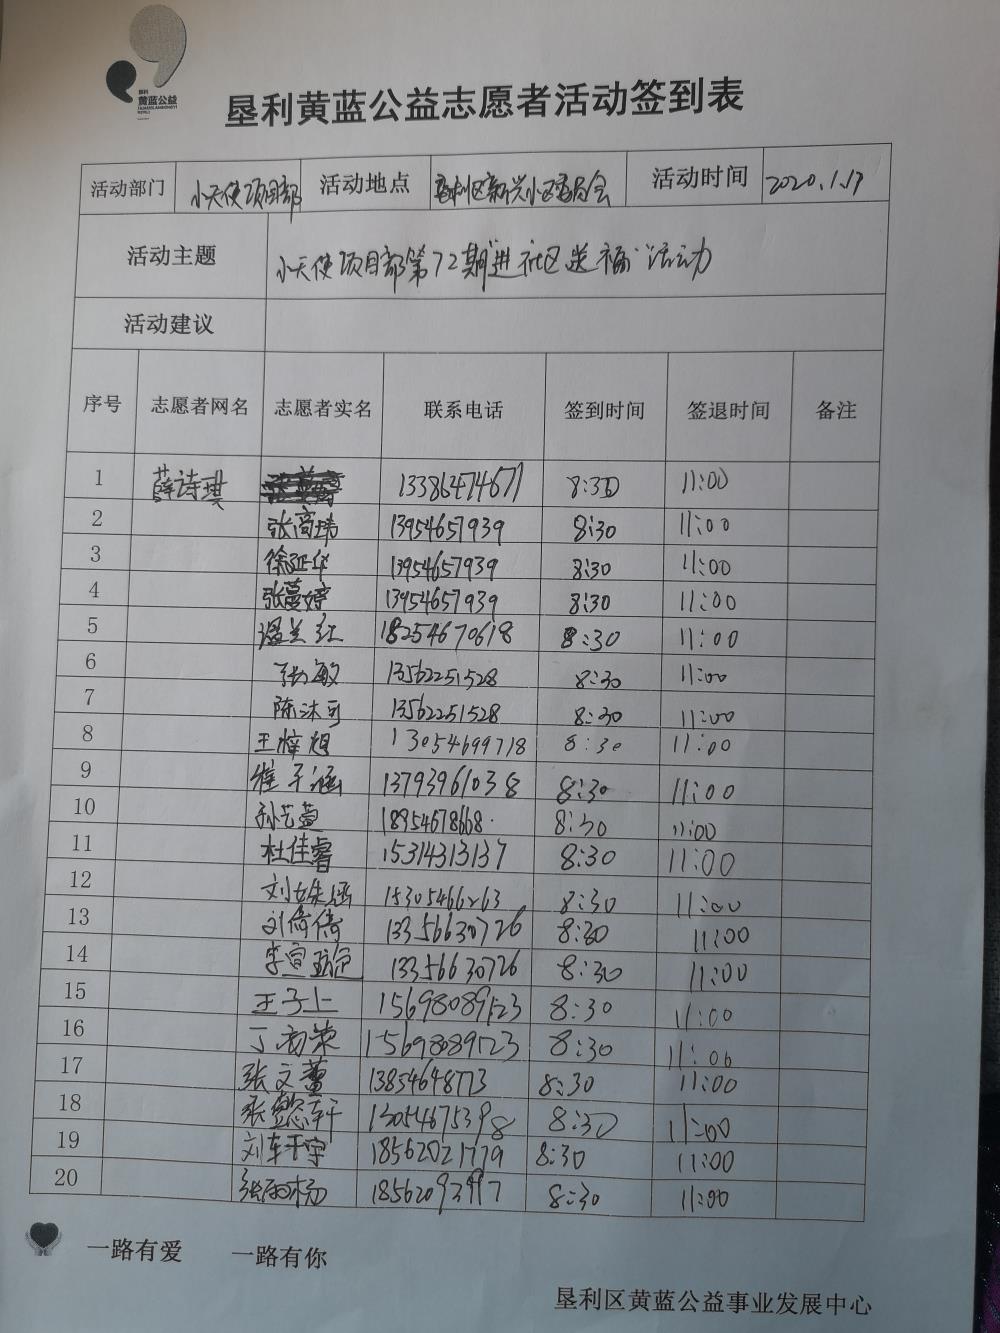 垦利
黄蓝公益
垦利黄蓝公益志愿者活动签到表
活动部门 小天使项目部 活动地点 垦利区新兴小区委员会 活动时间 2020.1.17
活动主题 小天使项目部第72期"进社区送福"活动
活动建议
序号 志愿者网名 志愿者实名 联系电话 签到时间 签退时间 备注
1 薛诗琪 13386474671 8:30 11:00
2 张高玮 13954657939 8:30 11:00
3 徐延华 13954657939 8:30 11:00
4 张蔓婷 13954657939 8:30 11:00
5 温兰红 18254670618 8:30 11:00
6 张敏 13562251528 8:30 11:00
7 陈沐可 13562251528 8:30 11:00
8 王梓旭 13054699718 8:30 11:00
9 崔子涵 13793961038 8:30 11:00
10 孙艺萱 18954678668 8:30 11:00
11 杜佳睿 15314313137 8:30 11:00
12 刘姝涵 15305466263 8:30 11:00
13 刘倚倚 13356630726 8:30 11:00
14 李宣 13356630726 8:30 11:00
15 王子上 15698089523 8:30 11:00
16 丁荣 15698089523 8:30 11:00
17 张文蕾 13854648773 8:30 11:00
18 张懿轩 13054675398 8:30 11:00
19 刘车千宇 18562021779 8:30 11:00
20 张雨杨 18562093997 8:30 11:00
一路有爱 一路有你
垦利区黄蓝公益事业发展中心